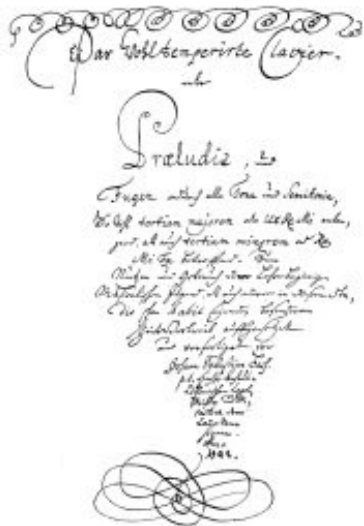 Das Wohltemperirte Clavier.
oder
Præludia, und
Fugen durch alle Tone und Semitonia,
So wohl tertiam majorem oder Ut Re Mi anlan-
gend, als auch tertiam minorem oder Re
Mi Fa betreffend. Zum
Nutzen und Gebrauch der Lehrbegierigen
Musicalischen Jugend, als auch derer in diesem stu-
dio schon habil seyenden besonderem
ZeitVertreib auffgesetzet
und verfertiget von
Johann Sebastian Bach.
Anno
1722.